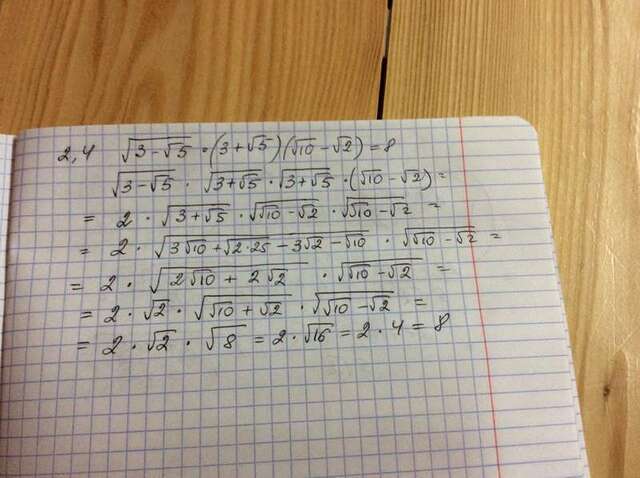 2,4 √(3-√5) · (3+√5)(√10-√2) = 8
√(3-√5) · √(3+√5) · √(3+√5) · (√10-√2) =
= 2 · √(3+√5) · √(√10-√2) · √(√10-√2) =
= 2 · √(3√10+√(2·25)-3√2-√10) · √(√10-√2) =
= 2 · √(2√10+2√2) · √(√10-√2) =
= 2 · √2 · √(√10+√2) · √(√10-√2) =
= 2 · √2 · √8 = 2 · √16 = 2 · 4 = 8